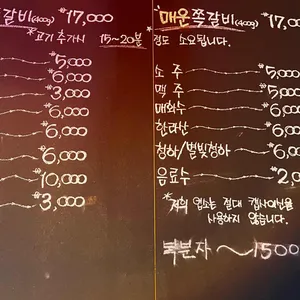 갈비(400g) ₩17,000
* 고기 추가시 15~20분
5,000
₩6,000
₩3,000
₩6,000
₩6,000
₩6,000
₩10,000
₩3,000
"매운쪽갈비(400g) ₩17,0
정도 소요됩니다.
소주 5,00
맥주 5,000
매화수 6,000
한라산 6,000
청하/별빛청하 6,00
음료수 ₩2,0
*저희 업소는 절대 캡사이신을
사용하지 않습니다.
복분자 ~1500